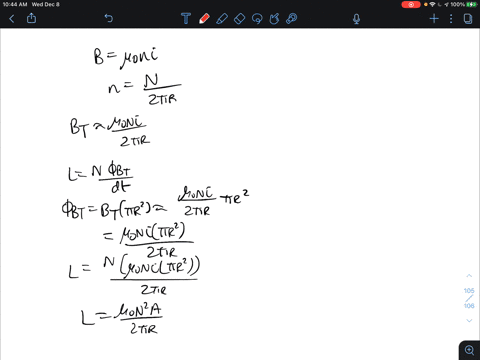 10:44 AM Wed Dec 8
100%
B = μ₀ni
n = N / 2πR
B_T ≈ μ₀Ni / 2πR
L = N Φ_BT / dt
Φ_BT = B_T(πR²) = μ₀Ni / 2πR πR²
= μ₀Ni(πR²) / 2πR
L = N(μ₀Ni(πR²)) / 2πR
L = μ₀N²A / 2πR
106
106